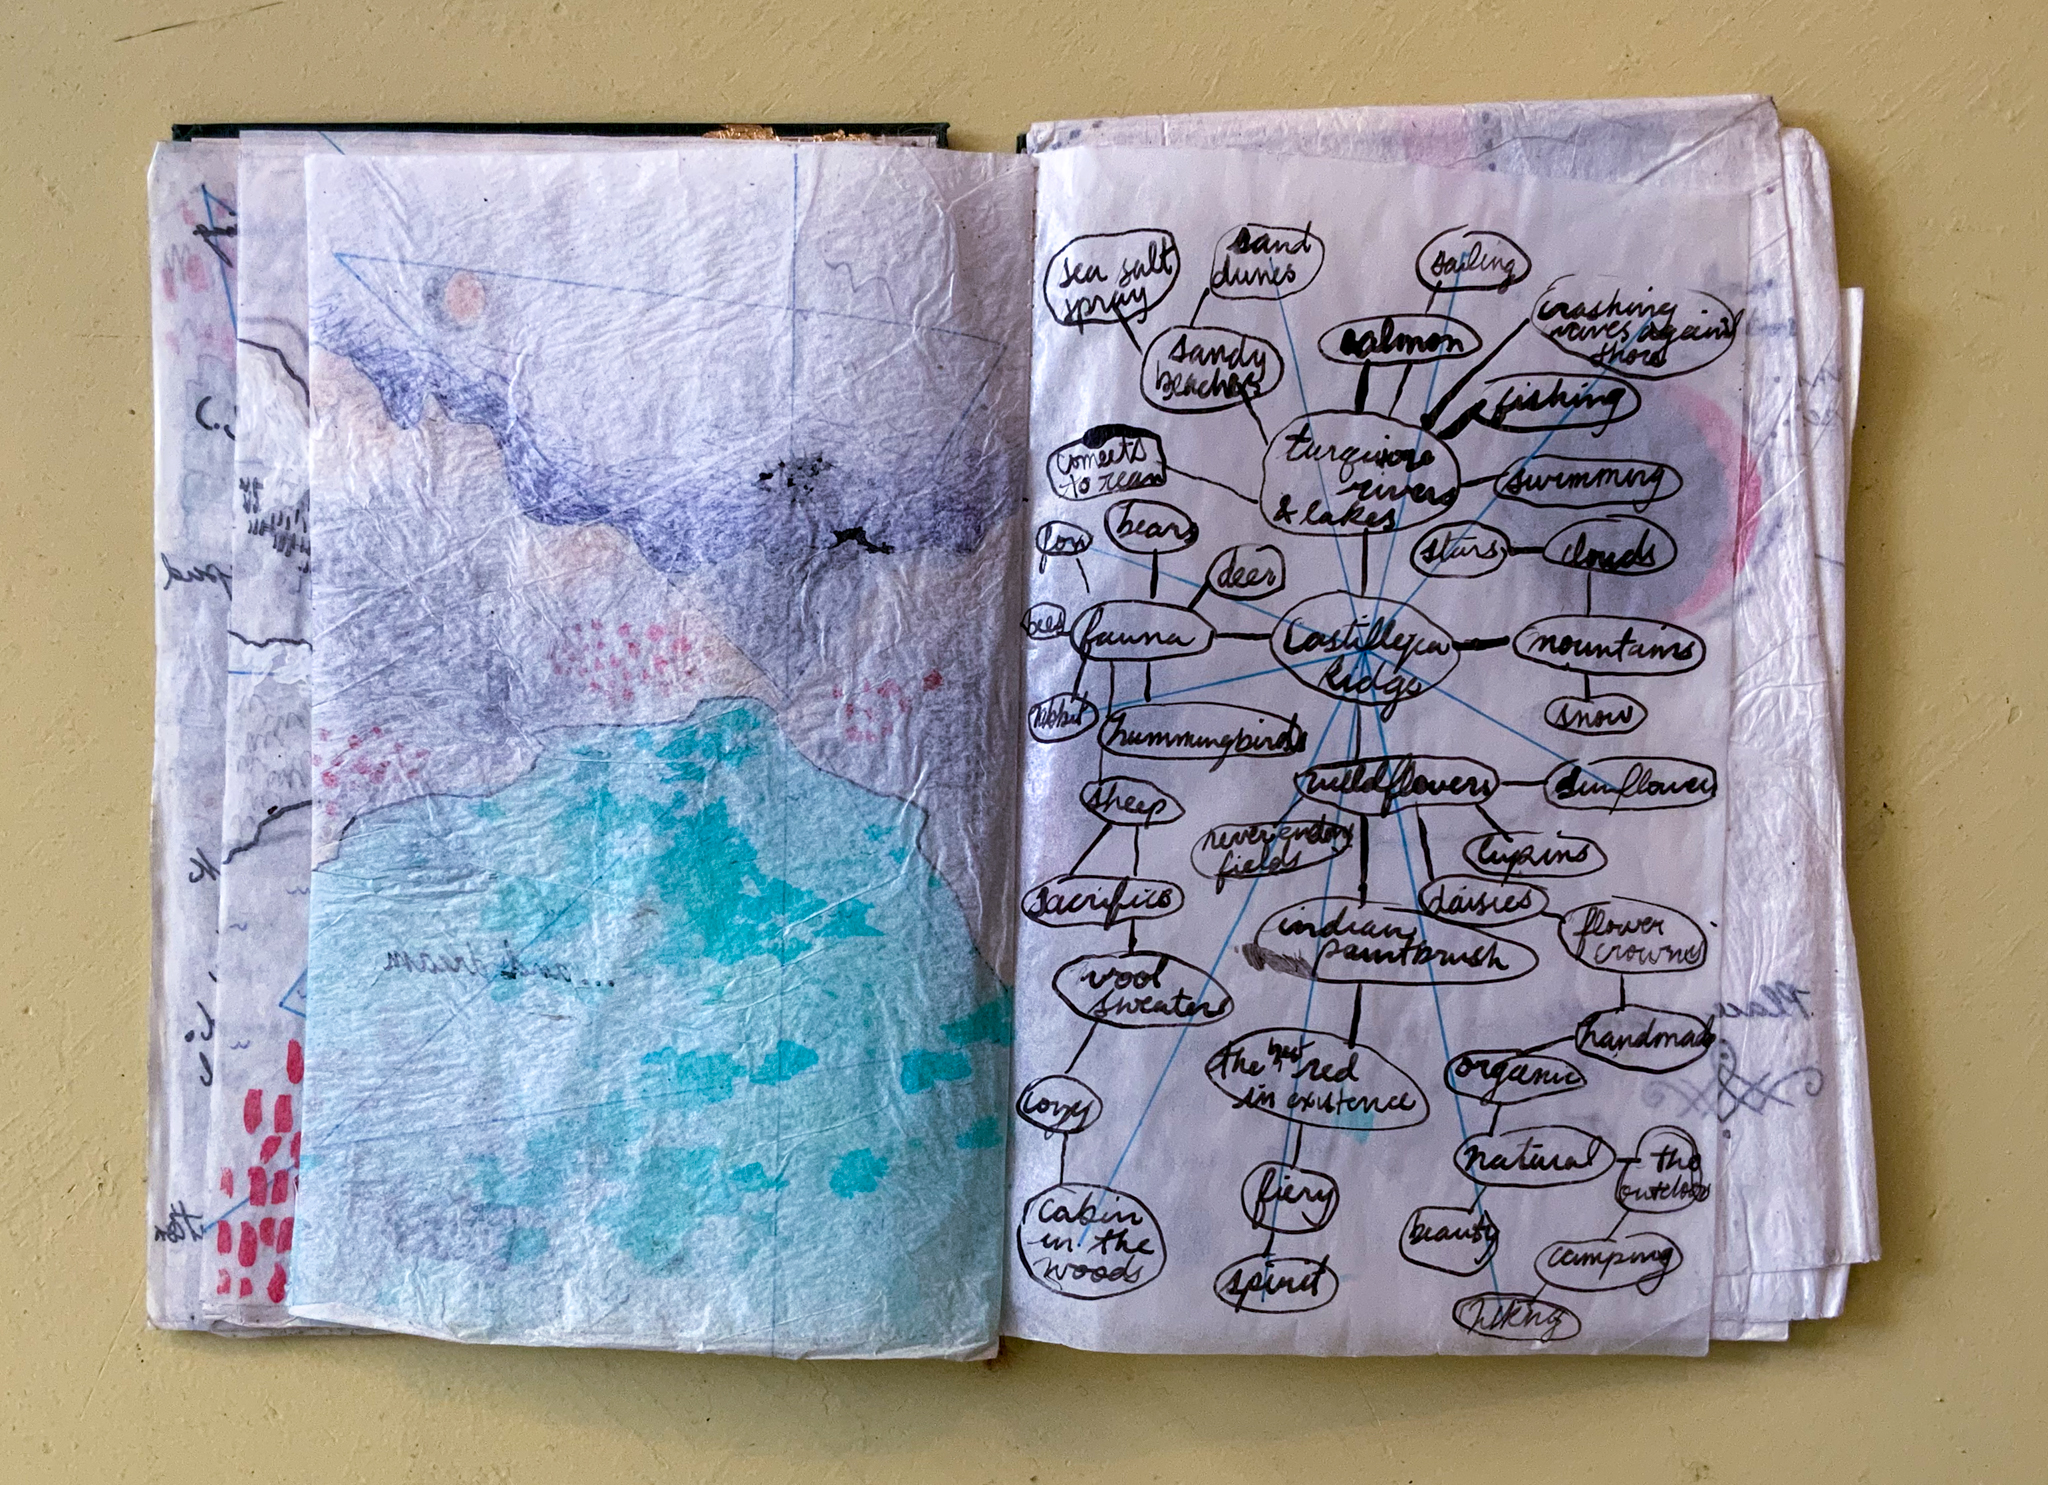 sea salt
spray
sand
dunes
sailing
crashing
waves against
shore
salmon
sandy
beaches
fishing
turquoise
rivers
& lakes
connects
to ocean
swimming
bears
fox
stars
clouds
deer
bees
fauna
Castilleja
Ridge
mountains
rabbit
hummingbirds
snow
wildflowers
sunflower
sheep
never ending
fields
lupins
sacrifice
daisies
indian
paintbrush
flower
crowns
...and dream
wool
sweaters
handmade
the best red
in existence
organic
cozy
natural
the
outdoors
fiery
cabin
in the
woods
beauty
camping
spirit
hiking